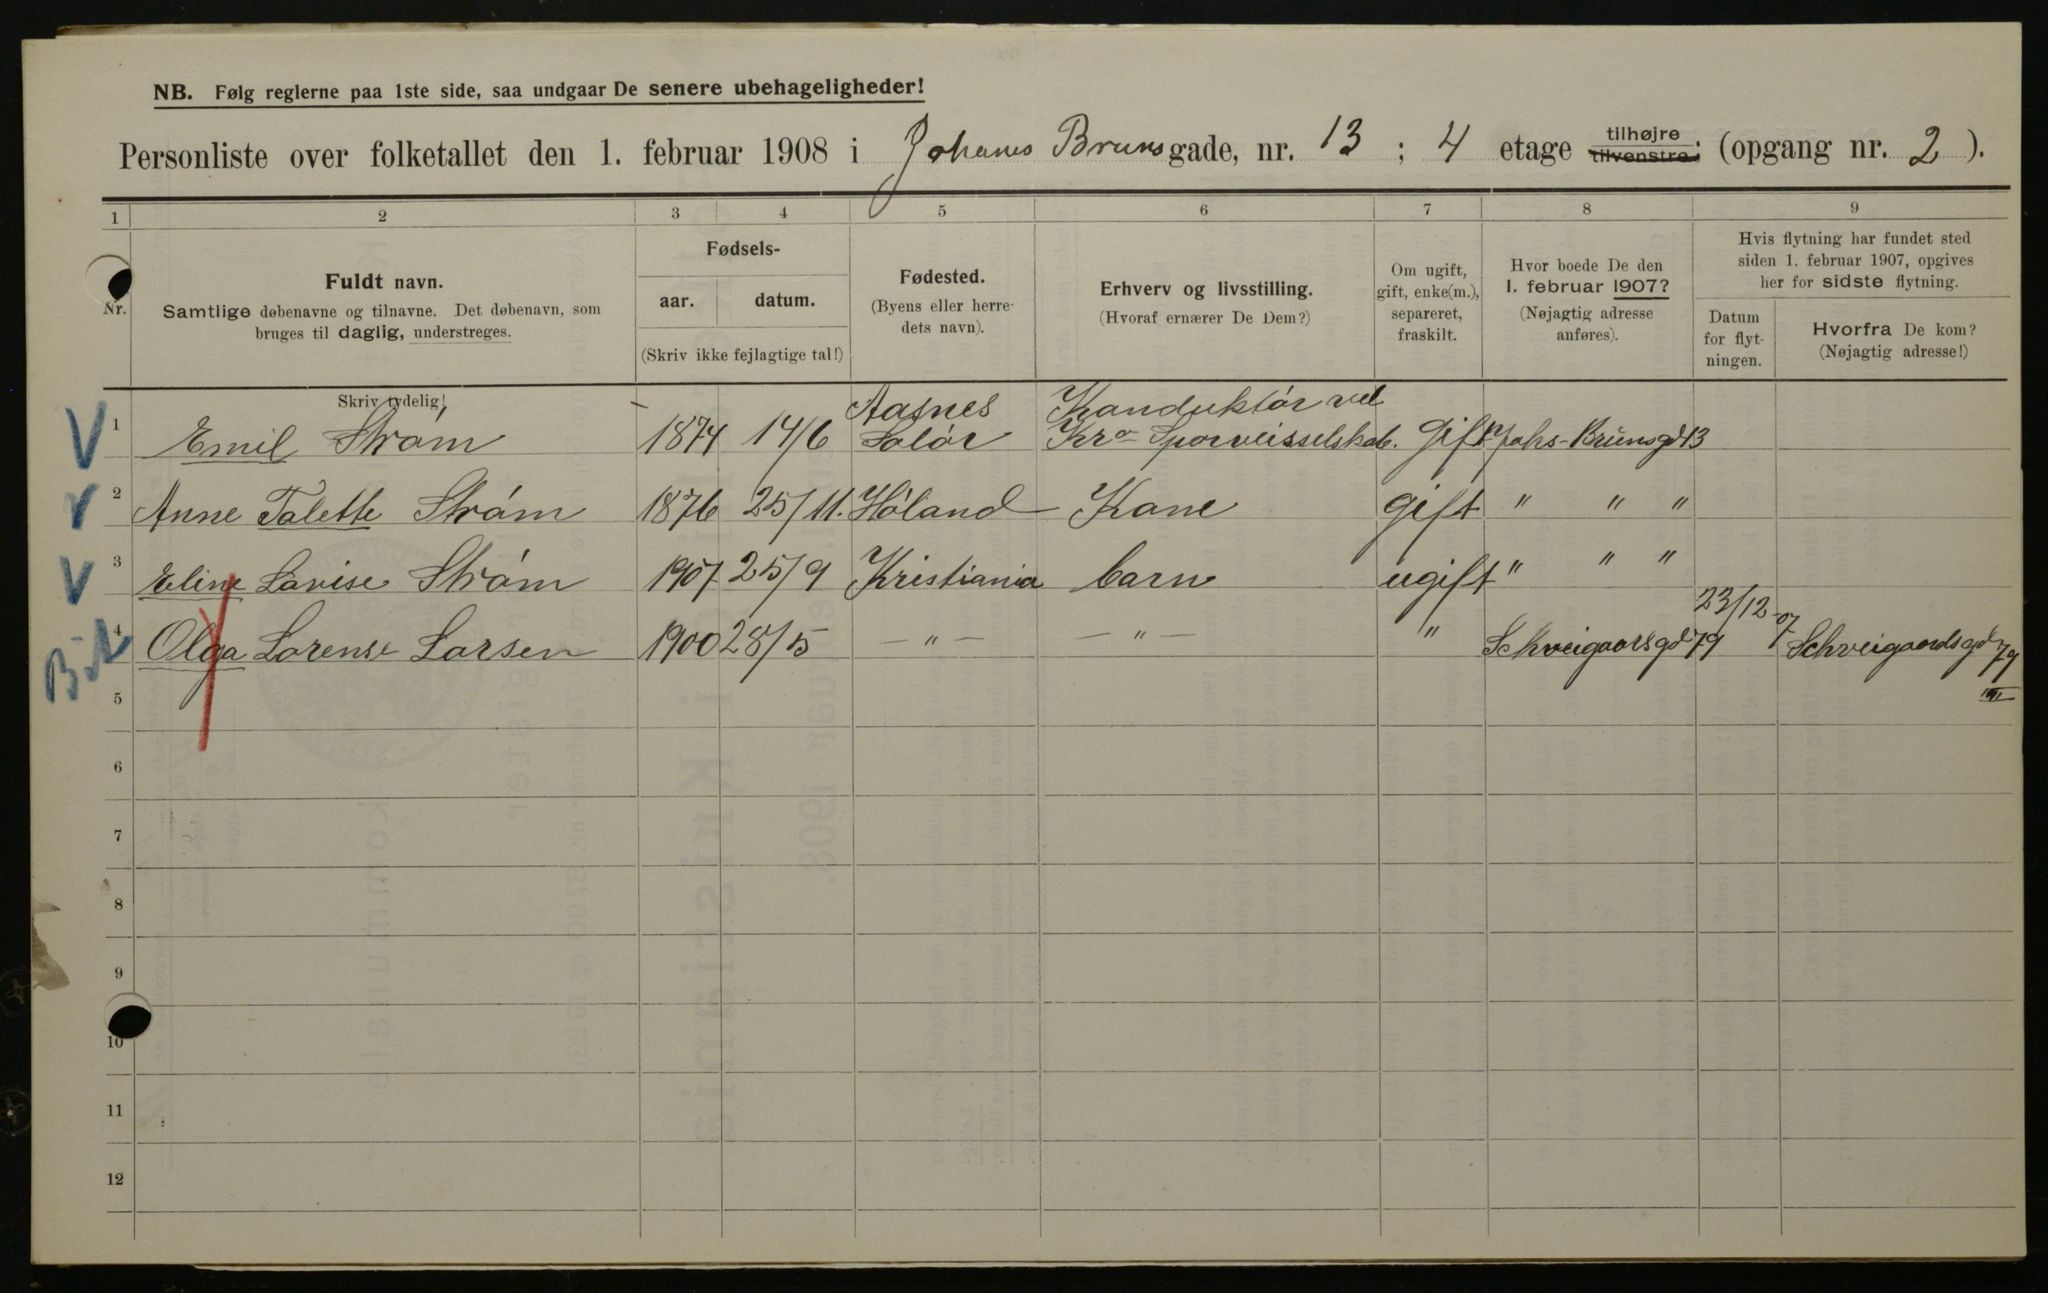 NB. Følg reglerne paa 1ste side, saa undgaar De senere ubehageligheder!
Personliste over folketallet den 1. februar 1908 i Johanes Brunsgade, nr. 13 ; 4 etage tilhøjre tilvenstre; (opgang nr. 2 ).
1 2 3 4 5 6 7 8 9
Nr.
Fuldt navn.
Samtlige døbenavne og tilnavne. Det døbenavn, som
bruges til daglig, understreges.
Skriv tydelig!
Fødsels-
aar. datum.
(Skriv ikke fejlagtige tal!)
Fødested.
(Byens eller herre-
dets navn).
Erhverv og livsstilling.
(Hvoraf ernærer De Dem?)
Om ugift,
gift, enke(m.),
separeret,
fraskilt.
Hvor boede De den
1. februar 1907?
(Nøjagtig adresse
anføres).
Hvis flytning har fundet sted
siden 1. februar 1907, opgives
her for sidste flytning.
Datum
for flyt-
ningen.
Hvorfra De kom?
(Nøjagtig adresse!)
Aasnes Konduktór ved
V 1 Emil Stróm 1874 14/6 Solór Kra Sporveisselskab. gift Johs-Brünsgd 13
V 2 Anne Talette Stróm 1876 25/11. Hóland Kone gift " " "
V 3 Eline Lovise Stróm 1907 25/9 Kristiania barn ugift " " "
4 Olga Lorense Larsen 1900 28/5 — " — — " — " Schveigaarsgd 79 23/12-07 Schveigaardsgd 79 III
5
6
7
8
9
10
11
12